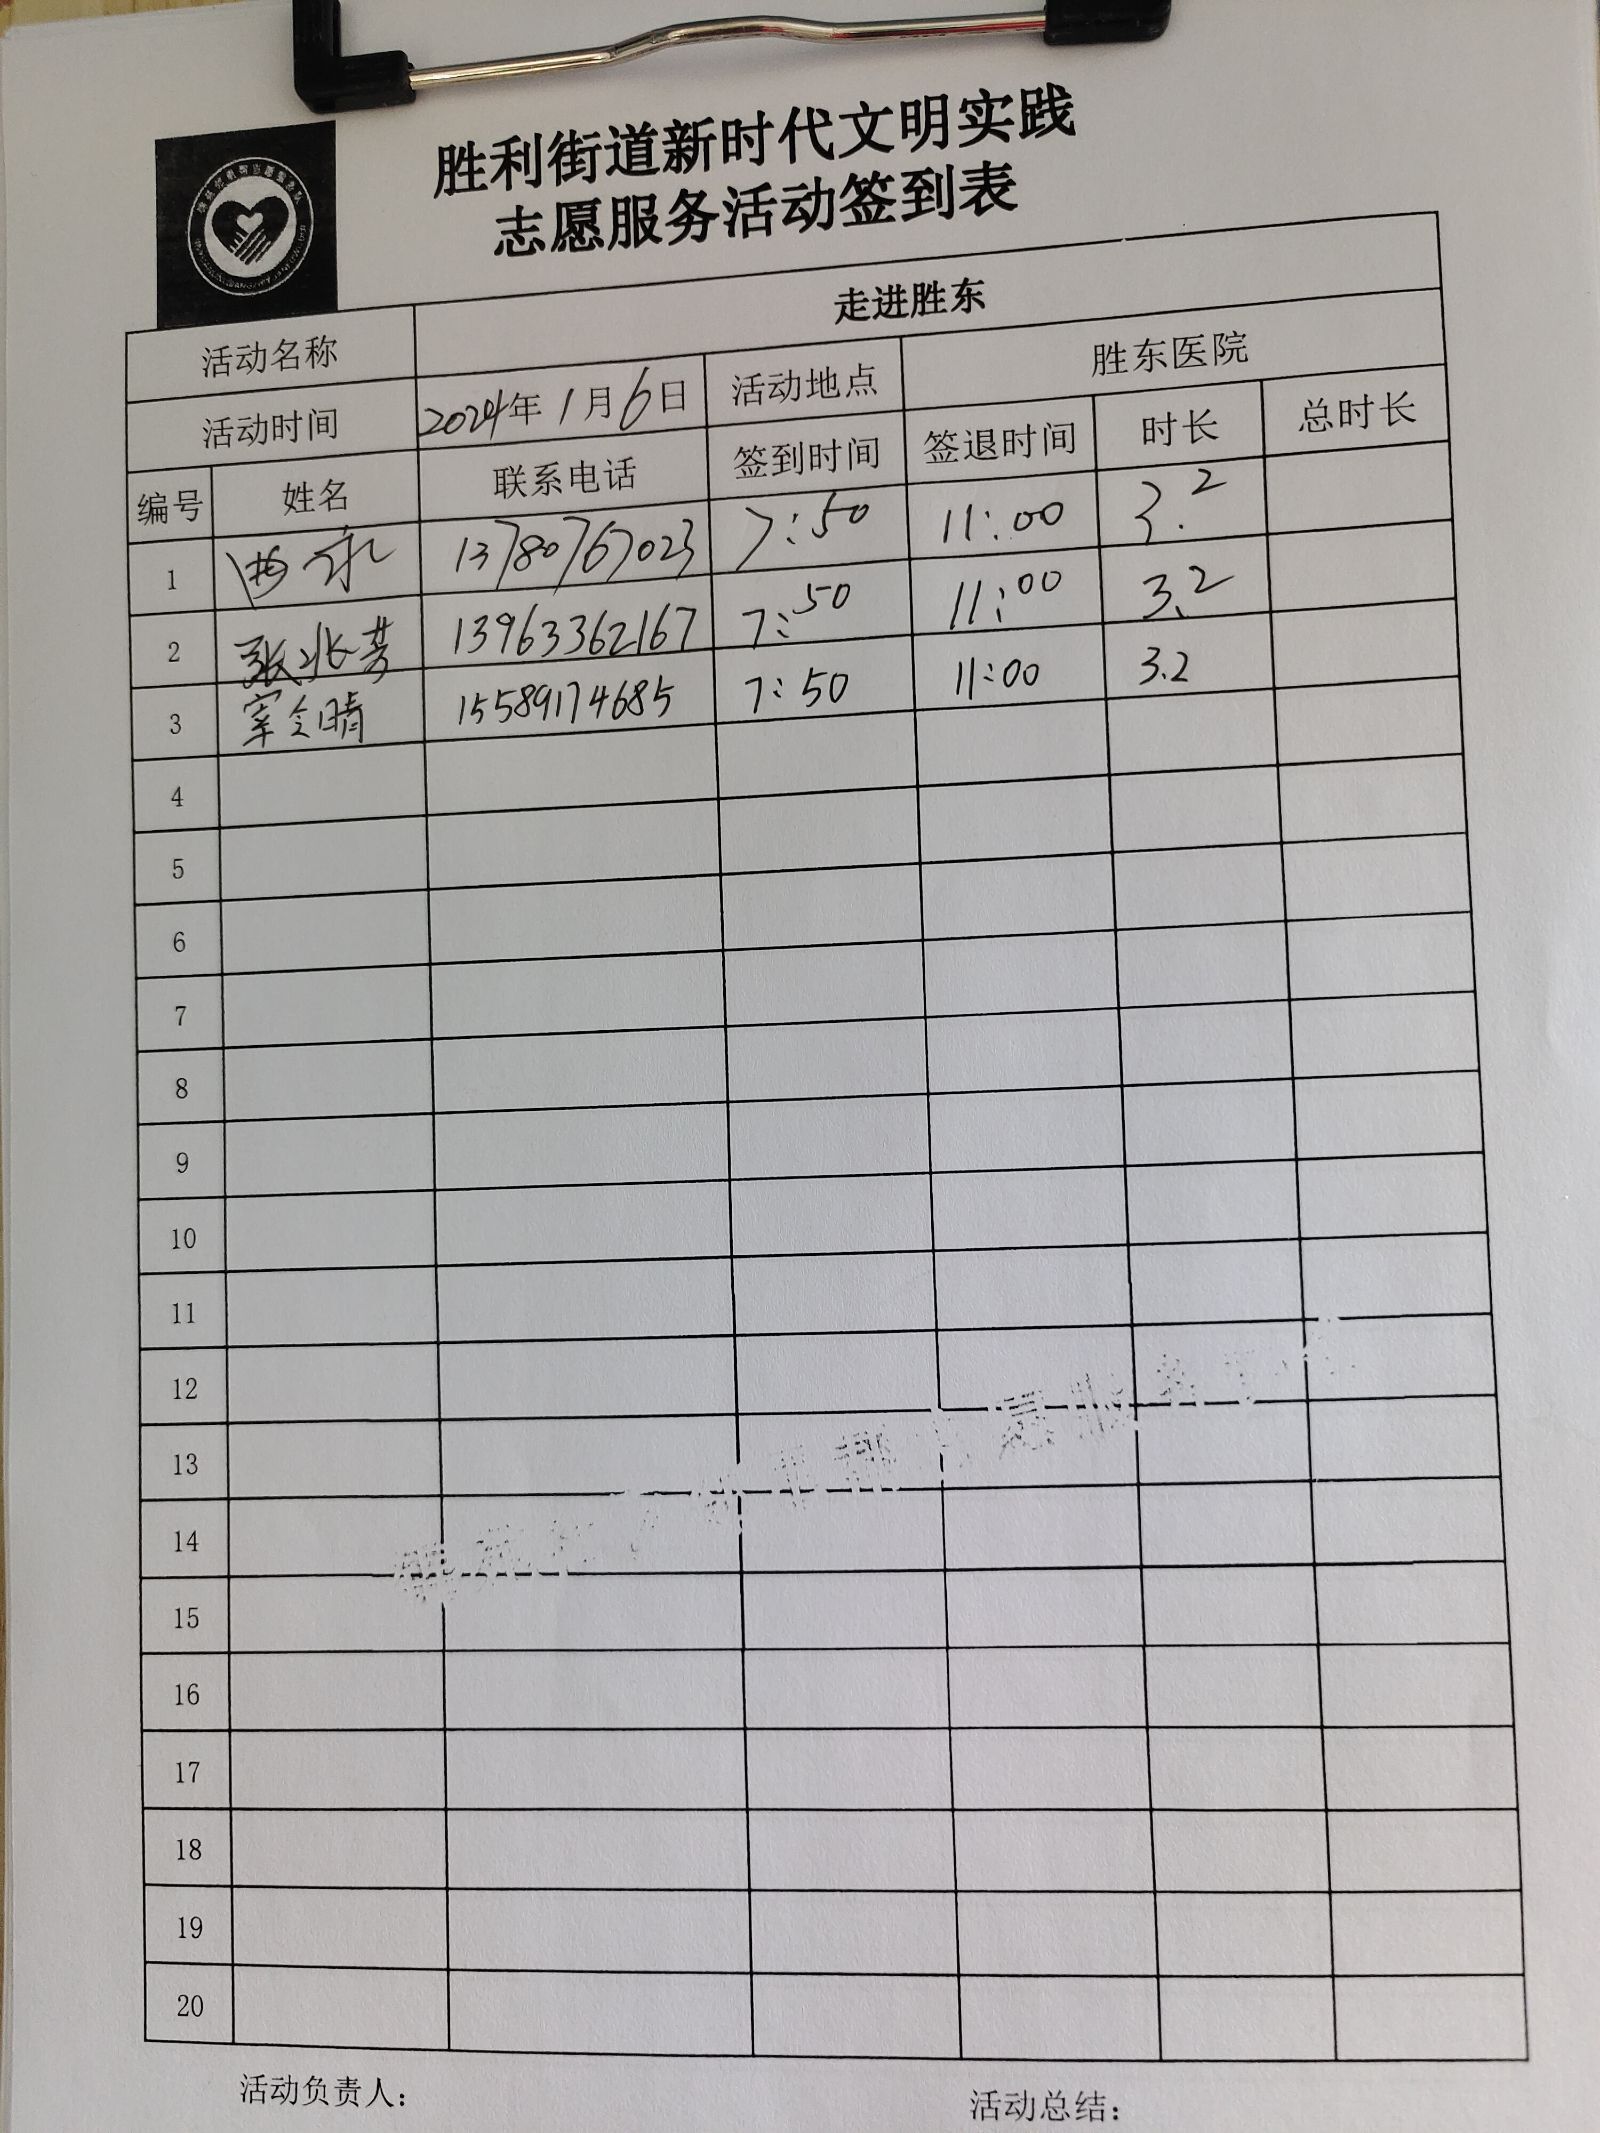 胜利街道新时代文明实践
志愿服务活动签到表
活动名称 走进胜东
活动时间 2024年1月6日 活动地点 胜东医院
编号 姓名 联系电话 签到时间 签退时间 时长 总时长
1 13780767023 7:50 11:00 3.2
2 张兆芳 13963362167 7:50 11:00 3.2
3 15589174685 7:50 11:00 3.2
4
5
6
7
8
9
10
11
12
13
14
15
16
17
18
19
20
活动负责人: 活动总结: